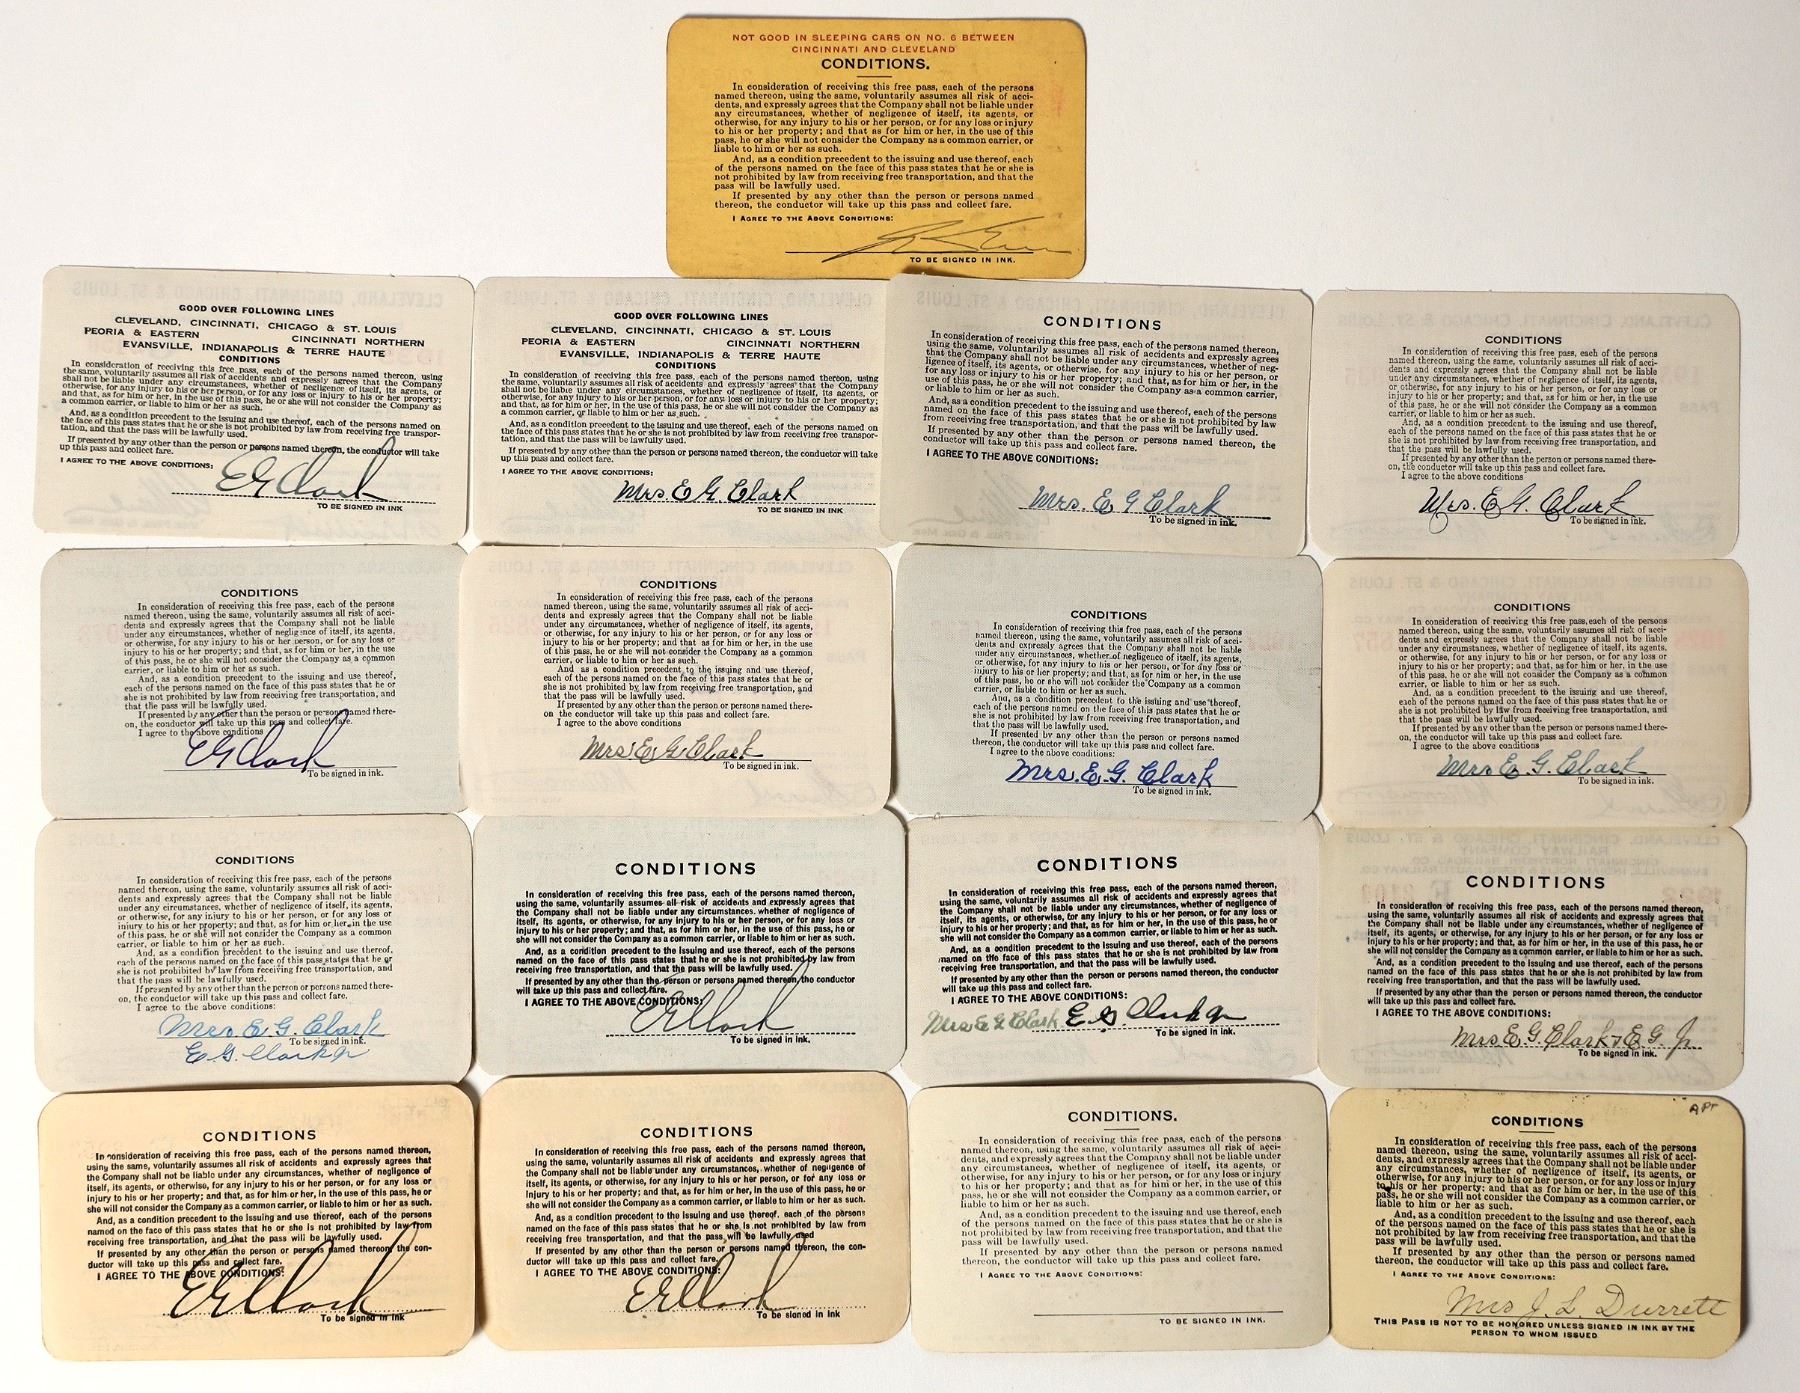 NOT GOOD IN SLEEPING CARS ON NO. 6 BETWEEN
CINCINNATI AND CLEVELAND
CONDITIONS.
In consideration of receiving this free pass, each of the persons
named thereon, using the same, voluntarily assumes all risk of acci-
dents, and expressly agrees that the Company shall not be liable under
any circumstances, whether of negligence of itself, its agents, or
otherwise, for any injury to his or her person, or for any loss or injury
to his or her property; and that as for him or her, in the use of this
pass, he or she will not consider the Company as a common carrier, or
liable to him or her as such.
And, as a condition precedent to the issuing and use thereof, each
of the persons named on the face of this pass states that he or she is
not prohibited by law from receiving free transportation, and that the
pass will be lawfully used.
If presented by any other than the person or persons named
thereon, the conductor will take up this pass and collect fare.
I AGREE TO THE ABOVE CONDITIONS:
TO BE SIGNED IN INK.
GOOD OVER FOLLOWING LINES
CLEVELAND, CINCINNATI, CHICAGO & ST. LOUIS
PEORIA & EASTERN CINCINNATI NORTHERN
EVANSVILLE, INDIANAPOLIS & TERRE HAUTE
CONDITIONS
In consideration of receiving this free pass, each of the persons named thereon, using
the same, voluntarily assumes all risk of accidents and expressly agrees that the Company
shall not be liable under any circumstances, whether of negligence of itself, its agents, or
otherwise, for any injury to his or her person, or for any loss or injury to his or her property;
and that, as for him or her, in the use of this pass, he or she will not consider the Company as
a common carrier, or liable to him or her as such.
And, as a condition precedent to the issuing and use thereof, each of the persons named on
the face of this pass states that he or she is not prohibited by law from receiving free transpor-
tation, and that the pass will be lawfully used.
If presented by any other than the person or persons named thereon, the conductor will take
up this pass and collect fare.
I AGREE TO THE ABOVE CONDITIONS:
E G Clark
TO BE SIGNED IN INK
GOOD OVER FOLLOWING LINES
CLEVELAND, CINCINNATI, CHICAGO & ST. LOUIS
PEORIA & EASTERN CINCINNATI NORTHERN
EVANSVILLE, INDIANAPOLIS & TERRE HAUTE
CONDITIONS
In consideration of receiving this free pass, each of the persons named thereon, using
the same, voluntarily assumes all risk of accidents and expressly agrees that the Company
shall not be liable under any circumstances, whether of negligence of itself, its agents, or
otherwise, for any injury to his or her person, or for any loss or injury to his or her property;
and that, as for him or her, in the use of this pass, he or she will not consider the Company as
a common carrier, or liable to him or her as such.
And, as a condition precedent to the issuing and use thereof, each of the persons named on
the face of this pass states that he or she is not prohibited by law from receiving free transpor-
tation, and that the pass will be lawfully used.
If presented by any other than the person or persons named thereon, the conductor will take
up this pass and collect fare.
I AGREE TO THE ABOVE CONDITIONS:
Mrs. E G. Clark
TO BE SIGNED IN INK
CONDITIONS
In consideration of receiving this free pass, each of the persons named thereon,
using the same, voluntarily assumes all risk of accidents and expressly agrees
that the Company shall not be liable under any circumstances, whether of neg-
ligence of itself, its agents, or otherwise, for any injury to his or her person, or
for any loss or injury to his or her property; and that, as for him or her, in the
use of this pass, he or she will not consider the Company as a common carrier,
or liable to him or her as such.
And, as a condition precedent to the issuing and use thereof, each of the persons
named on the face of this pass states that he or she is not prohibited by law
from receiving free transportation, and that the pass will be lawfully used.
If presented by any other than the person or persons named thereon, the
conductor will take up this pass and collect fare.
I AGREE TO THE ABOVE CONDITIONS:
Mrs. E G Clark
To be signed in ink.
CONDITIONS
In consideration of receiving this free pass, each of the persons
named thereon, using the same, voluntarily assumes all risk of acci-
dents and expressly agrees that the Company shall not be liable
under any circumstances, whether of negligence of itself, its agents,
or otherwise, for any injury to his or her person, or for any loss or
injury to his or her property; and that, as for him or her, in the use
of this pass, he or she will not consider the Company as a common
carrier, or liable to him or her as such.
And, as a condition precedent to the issuing and use thereof,
each of the persons named on the face of this pass states that he or
she is not prohibited by law from receiving free transportation, and
that the pass will be lawfully used.
If presented by any other than the person or persons named there-
on, the conductor will take up this pass and collect fare.
I agree to the above conditions
Mrs. E G. Clark
To be signed in ink.
CONDITIONS
In consideration of receiving this free pass, each of the persons
named thereon, using the same, voluntarily assumes all risk of acci-
dents and expressly agrees that the Company shall not be liable
under any circumstances, whether of negligence of itself, its agents,
or otherwise, for any injury to his or her person, or for any loss or
injury to his or her property; and that, as for him or her, in the use
of this pass, he or she will not consider the Company as a common
carrier, or liable to him or her as such.
And, as a condition precedent to the issuing and use thereof,
each of the persons named on the face of this pass states that he or
she is not prohibited by law from receiving free transportation, and
that the pass will be lawfully used.
If presented by any other than the person or persons named there-
on, the conductor will take up this pass and collect fare.
I agree to the above conditions
E G Clark
To be signed in ink.
CONDITIONS
In consideration of receiving this free pass, each of the persons
named thereon, using the same, voluntarily assumes all risk of acci-
dents and expressly agrees that the Company shall not be liable
under any circumstances, whether of negligence of itself, its agents,
or otherwise, for any injury to his or her person, or for any loss or
injury to his or her property; and that, as for him or her, in the use
of this pass, he or she will not consider the Company as a common
carrier, or liable to him or her as such.
And, as a condition precedent to the issuing and use thereof,
each of the persons named on the face of this pass states that he or
she is not prohibited by law from receiving free transportation, and
that the pass will be lawfully used.
If presented by any other than the person or persons named there-
on the conductor will take up this pass and collect fare.
I agree to the above conditions
Mrs E G Clark
To be signed in ink.
CONDITIONS
In consideration of receiving this free pass, each of the persons
named thereon, using the same, voluntarily assumes all risk of acci-
dents and expressly agrees that the Company shall not be liable
under any circumstances, whether of negligence of itself, its agents,
or otherwise, for any injury to his or her person, or for any loss or
injury to his or her property; and that, as for him or her, in the use
of this pass, he or she will not consider the Company as a common
carrier, or liable to him or her as such.
And, as a condition precedent to the issuing and use thereof,
each of the persons named on the face of this pass states that he or
she is not prohibited by law from receiving free transportation, and
that the pass will be lawfully used.
If presented by any other than the person or persons named
thereon, the conductor will take up this pass and collect fare.
I agree to the above conditions:
Mrs. E. G. Clark
To be signed in ink.
CONDITIONS
In consideration of receiving this free pass, each of the persons
named thereon, using the same, voluntarily assumes all risk of acci-
dents and expressly agrees that the Company shall not be liable
under any circumstances, whether of negligence of itself, its agents,
or otherwise, for any injury to his or her person, or for any loss or
injury to his or her property; and that, as for him or her, in the use
of this pass, he or she will not consider the Company as a common
carrier, or liable to him or her as such.
And, as a condition precedent to the issuing and use thereof,
each of the persons named on the face of this pass states that he or
she is not prohibited by law from receiving free transportation, and
that the pass will be lawfully used.
If presented by any other than the person or persons named there-
on, the conductor will take up this pass and collect fare.
I agree to the above conditions
Mrs E. G. Clark
To be signed in ink.
CONDITIONS
In consideration of receiving this free pass, each of the persons
named thereon, using the same, voluntarily assumes all risk of acci-
dents and expressly agrees that the Company shall not be liable
under any circumstances, whether of negligence of itself, its agents,
or otherwise, for any injury to his or her person, or for any loss or
injury to his or her property; and that, as for him or her, in the use
of this pass, he or she will not consider the Company as a common
carrier, or liable to him or her as such.
And, as a condition precedent to the issuing and use thereof,
each of the persons named on the face of this pass states that he or
she is not prohibited by law from receiving free transportation, and
that the pass will be lawfully used.
If presented by any other than the person or persons named there-
on, the conductor will take up this pass and collect fare.
I agree to the above conditions:
Mrs. E. G. Clark
To be signed in ink.
E G Clark Jr
CONDITIONS
In consideration of receiving this free pass, each of the persons named thereon,
using the same, voluntarily assumes all risk of accidents and expressly agrees that
the Company shall not be liable under any circumstances, whether of negligence of
itself, its agents, or otherwise, for any injury to his or her person, or for any loss or
injury to his or her property; and that, as for him or her, in the use of this pass, he or
she will not consider the Company as a common carrier, or liable to him or her as such.
And, as a condition precedent to the issuing and use thereof, each of the persons
named on the face of this pass states that he or she is not prohibited by law from
receiving free transportation, and that the pass will be lawfully used.
If presented by any other than the person or persons named thereon, the conductor
will take up this pass and collect fare.
I AGREE TO THE ABOVE CONDITIONS:
E G Clark
To be signed in ink.
CONDITIONS
In consideration of receiving this free pass, each of the persons named thereon,
using the same, voluntarily assumes all risk of accidents and expressly agrees that
the Company shall not be liable under any circumstances, whether of negligence of
itself, its agents, or otherwise, for any injury to his or her person, or for any loss or
injury to his or her property; and that, as for him or her, in the use of this pass, he or
she will not consider the Company as a common carrier, or liable to him or her as such.
And, as a condition precedent to the issuing and use thereof, each of the persons
named on the face of this pass states that he or she is not prohibited by law from
receiving free transportation, and that the pass will be lawfully used.
If presented by any other than the person or persons named thereon, the conductor
will take up this pass and collect fare.
I AGREE TO THE ABOVE CONDITIONS:
Mrs E G Clark E. G. Clark Jr
To be signed in ink.
CONDITIONS
In consideration of receiving this free pass, each of the persons named thereon,
using the same, voluntarily assumes all risk of accidents and expressly agrees that
the Company shall not be liable under any circumstances, whether of negligence of
itself, its agents, or otherwise, for any injury to his or her person, or for any loss or
injury to his or her property; and that, as for him or her, in the use of this pass, he or
she will not consider the Company as a common carrier, or liable to him or her as such.
And, as a condition precedent to the issuing and use thereof, each of the persons
named on the face of this pass states that he or she is not prohibited by law from
receiving free transportation, and that the pass will be lawfully used.
If presented by any other than the person or persons named thereon, the conductor
will take up this pass and collect fare.
I AGREE TO THE ABOVE CONDITIONS:
Mrs E G. Clark & E. G. Jr
To be signed in ink.
CONDITIONS
In consideration of receiving this free pass, each of the persons named thereon,
using the same, voluntarily assumes all risk of accidents and expressly agrees that
the Company shall not be liable under any circumstances, whether of negligence of
itself, its agents, or otherwise, for any injury to his or her person, or for any loss or
injury to his or her property; and that, as for him or her, in the use of this pass, he or
she will not consider the Company as a common carrier, or liable to him or her as such.
And, as a condition precedent to the issuing and use thereof, each of the persons
named on the face of this pass states that he or she is not prohibited by law from
receiving free transportation, and that the pass will be lawfully used.
If presented by any other than the person or persons named thereon, the con-
ductor will take up this pass and collect fare.
I AGREE TO THE ABOVE CONDITIONS:
E G Clark
To be signed in ink
CONDITIONS
In consideration of receiving this free pass, each of the persons named thereon,
using the same, voluntarily assumes all risk of accidents and expressly agrees that
the Company shall not be liable under any circumstances, whether of negligence of
itself, its agents, or otherwise, for any injury to his or her person, or for any loss or
injury to his or her property; and that, as for him or her, in the use of this pass, he or
she will not consider the Company as a common carrier, or liable to him or her as such.
And, as a condition precedent to the issuing and use thereof, each of the persons
named on the face of this pass states that he or she is not prohibited by law from
receiving free transportation, and that the pass will be lawfully used
If presented by any other than the person or persons named thereon, the con-
ductor will take up this pass and collect fare.
I AGREE TO THE ABOVE CONDITIONS:
E G Clark
To be signed in ink
CONDITIONS.
In consideration of receiving this free pass, each of the persons
named thereon, using the same, voluntarily assumes all risk of acci-
dents, and expressly agrees that the Company shall not be liable under
any circumstances, whether of negligence of itself, its agents, or
otherwise, for any injury to his or her person, or for any loss or injury
to his or her property; and that as for him or her, in the use of this
pass, he or she will not consider the Company as a common carrier, or
liable to him or her as such.
And, as a condition precedent to the issuing and use thereof, each
of the persons named on the face of this pass states that he or she is
not prohibited by law from receiving free transportation, and that the
pass will be lawfully used.
If presented by any other than the person or persons named
thereon, the conductor will take up this pass and collect fare.
I AGREE TO THE ABOVE CONDITIONS:
TO BE SIGNED IN INK.
APT
CONDITIONS
In consideration of receiving this free pass, each of the persons
named thereon, using the same, voluntarily assumes all risk of acci-
dents, and expressly agrees that the Company shall not be liable under
any circumstances, whether of negligence of itself, its agents, or
otherwise, for any injury to his or her person, or for any loss or injury
to his or her property; and that as for him or her, in the use of this
pass, he or she will not consider the Company as a common carrier, or
liable to him or her as such.
And, as a condition precedent to the issuing and use thereof, each
of the persons named on the face of this pass states that he or she is
not prohibited by law from receiving free transportation, and that the
pass will be lawfully used.
If presented by any other than the person or persons named
thereon, the conductor will take up this pass and collect fare.
I AGREE TO THE ABOVE CONDITIONS:
Mrs J. L. Durrett
THIS PASS IS NOT TO BE HONORED UNLESS SIGNED IN INK BY THE
PERSON TO WHOM ISSUED